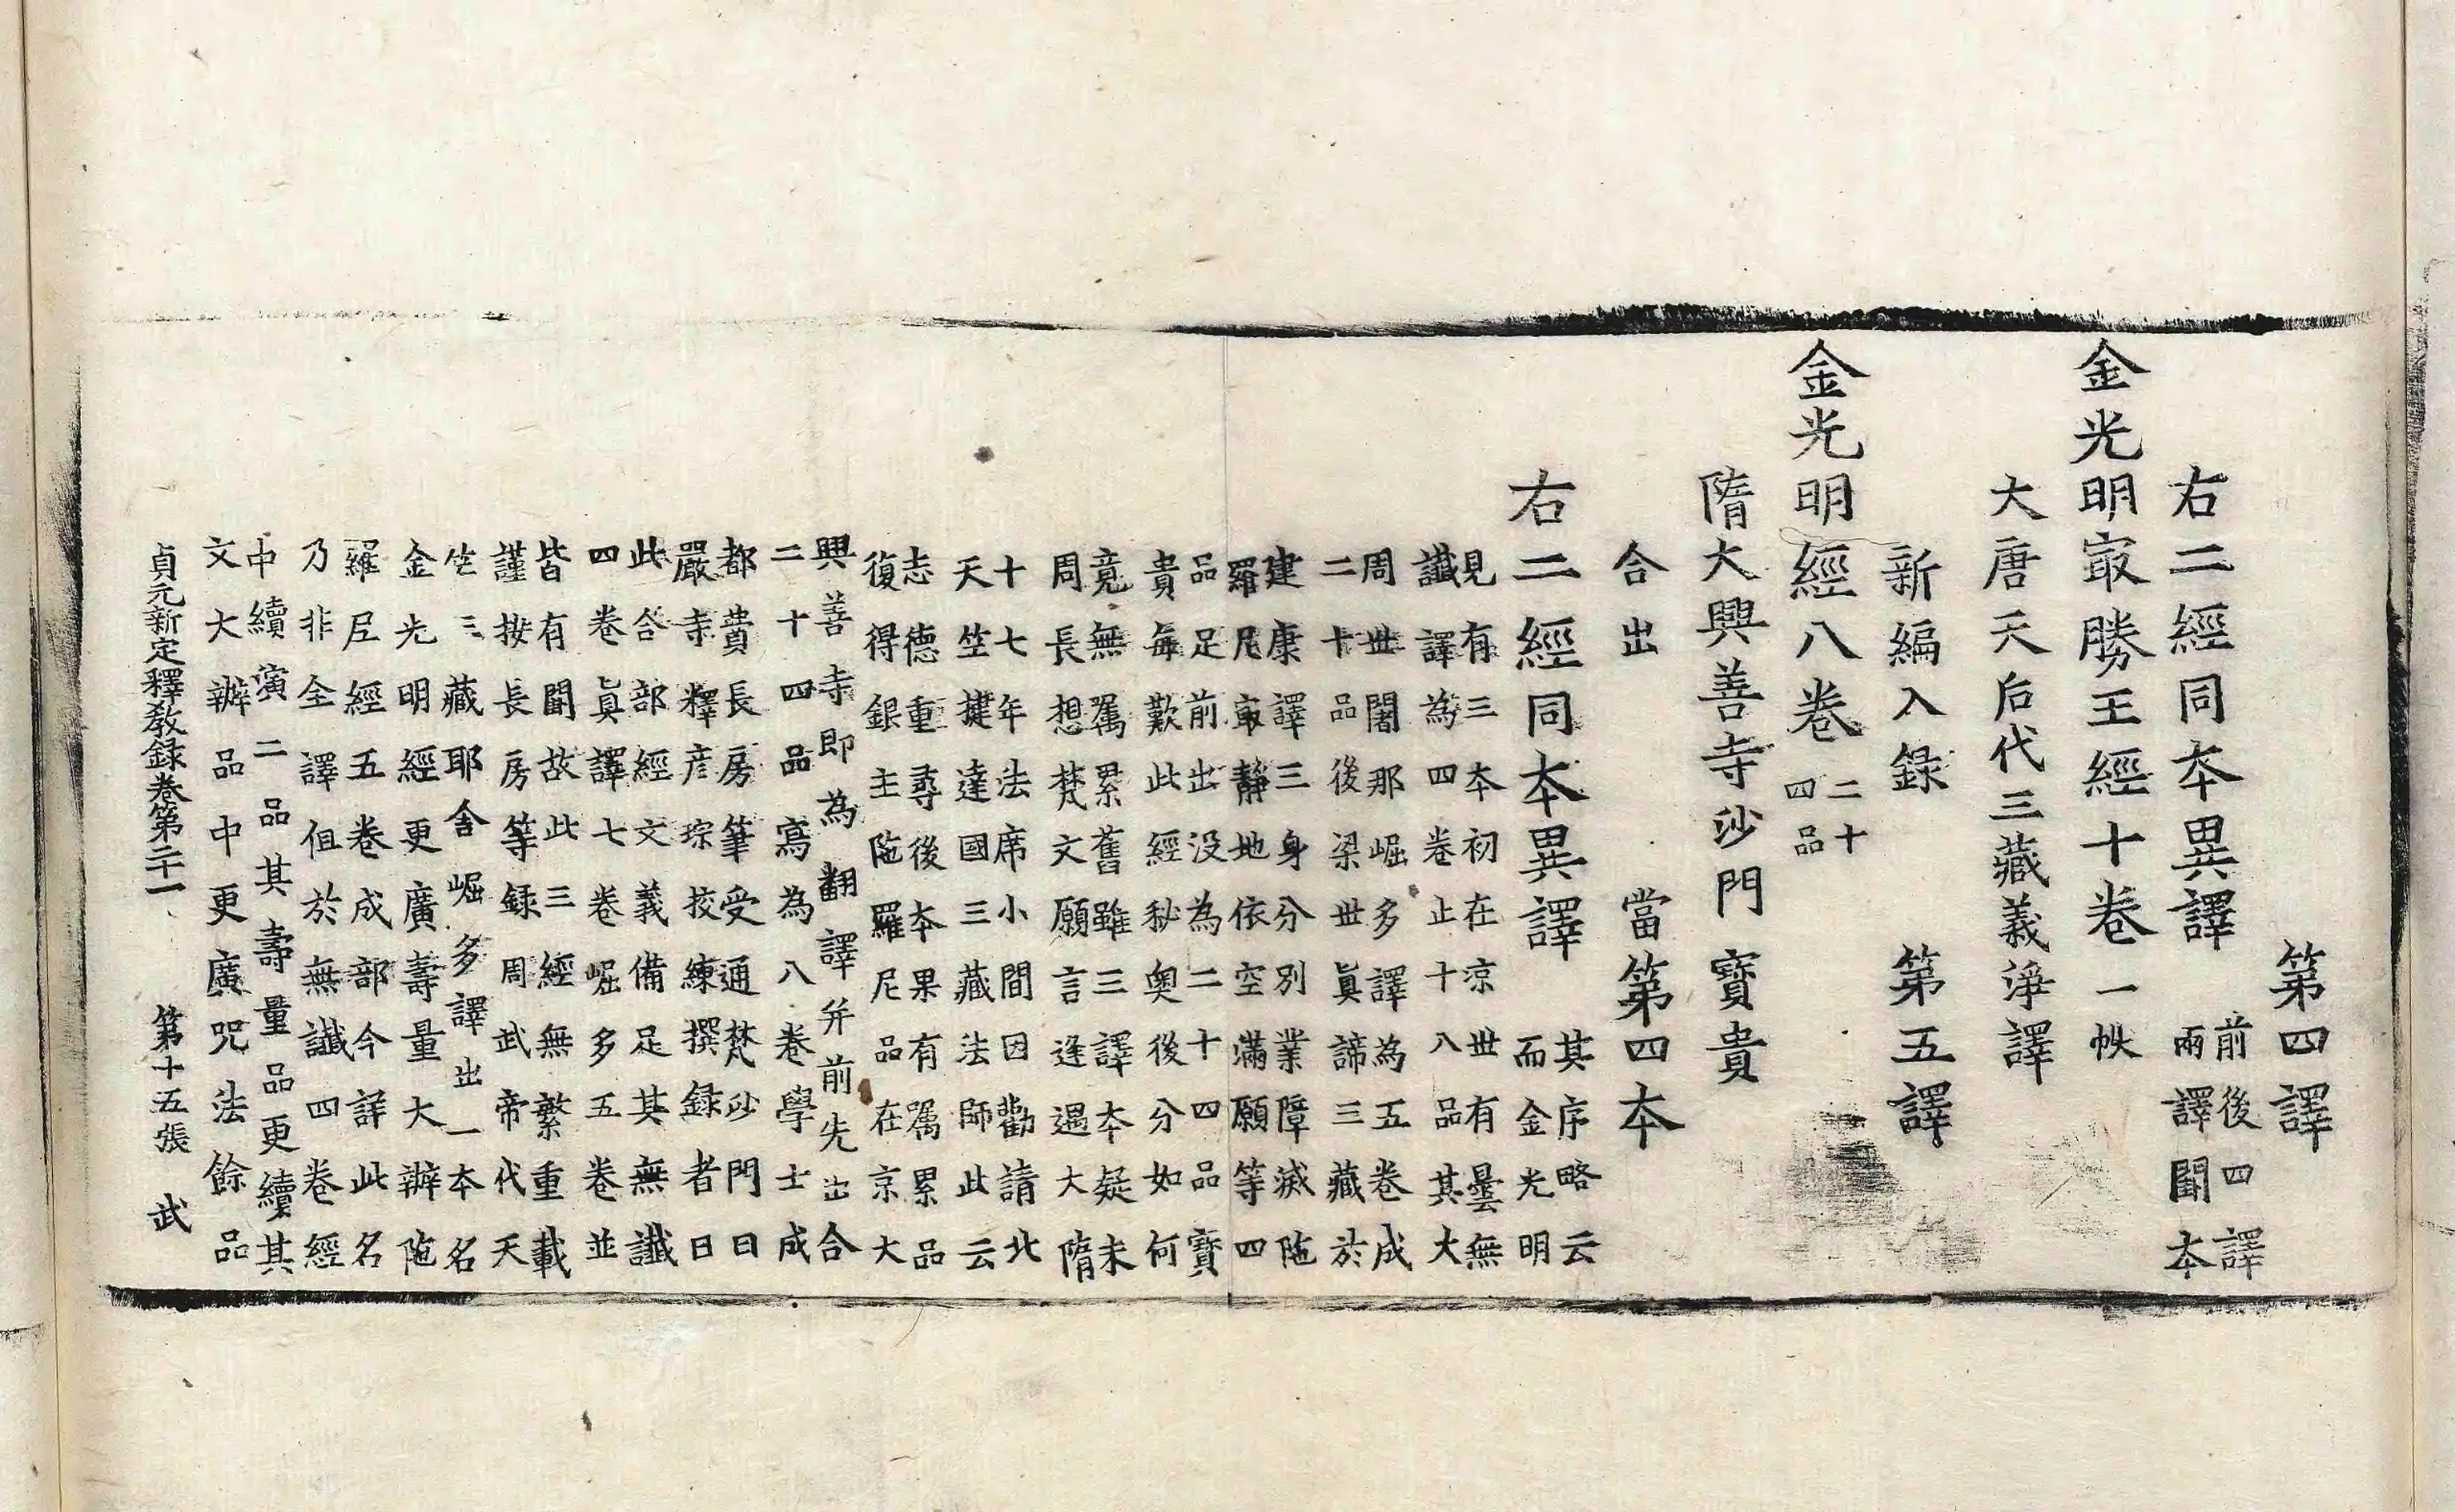 第四譯
右二經同本異譯
前後四譯
兩譯闕本
金光明㝡勝王經十卷一帙
大唐天后代三藏義淨譯
新編入録 第五譯
金光明經八卷
二十
四品
隋大興善寺沙門寶貴
合出 當第四本
右二經同本異譯
其序略云
而金光明
見有三本初在涼世有曇無
讖譯為四卷止十八品其大
周世闍那崛多譯為五卷成
二十品後梁世眞諦三藏於
建康譯三身分別業障滅陁
羅尼㝡靜地依空滿願等四
品足前出没為二十四品寶
貴每歎此經秘奧後分如何
竟無囑累舊雖三譯本疑未
周長想梵文願言逢遇大隋
十七年法席小間因勸請北
天竺揵達國三藏法師此云
志德重尋後本果有囑累品
復得銀主陁羅尼品在京大
興善寺即為翻譯并前先出合
二十四品寫為八卷學士成
都費長房筆受通梵沙門日
嚴寺釋彦琮挍練撰録者曰
此合部經文義備足其無讖
四卷眞譯七卷崛多五卷並
皆有闕故此三經無繁重載
謹按長房等録周武帝代天
竺三藏耶舍崛多譯出一本名
金光明經更廣壽量大辯陁
羅尼經五卷成部今詳此名
乃非全譯但於無讖四卷經
中續演二品其壽量品更續其
文大辯品中更廣咒法餘品
貞元新定釋教録卷第二十一 第十五張 武